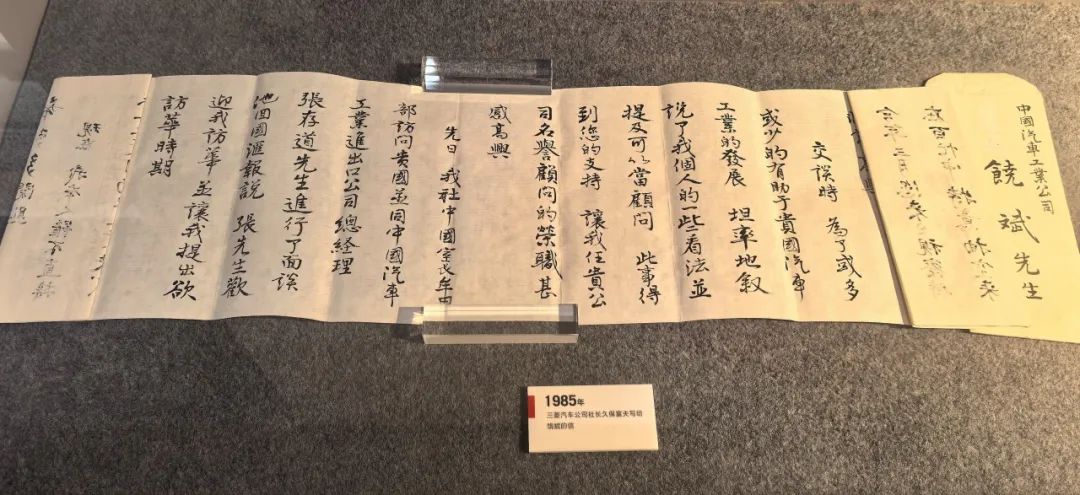 中國汽車工業公司
饒斌先生
交談時 為了或多
或少的有助于貴國汽車
工業的發展 坦率地叙
説了我個人的一些看法並
提及可以當顧問 此事得
到您的支持 讓我任貴公
司名譽顧問的榮職甚
感高興
先日 我社中國室长牟田
部訪問貴國並同中國汽車
工業進出口公司總经理
張存道先生進行了面談
他回國滙報説 張先生歡
迎我訪華 並讓我提出欲
訪華時期
現在
1985年
三菱汽车公司社长久保富夫写给
饶斌的信